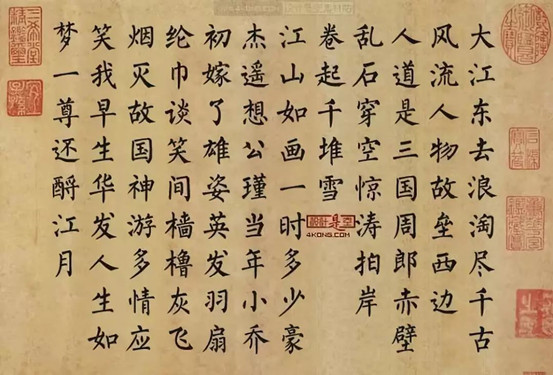 大江东去浪淘尽千古
风流人物故垒西边
人道是三国周郎赤壁
乱石穿空惊涛拍岸
卷起千堆雪
江山如画一时多少豪
杰遥想公瑾当年小乔
初嫁了雄姿英发羽扇
纶巾谈笑间樯橹灰飞
烟灭故国神游多情应
笑我早生华发人生如
梦一尊还酹江月
4KONG.COM